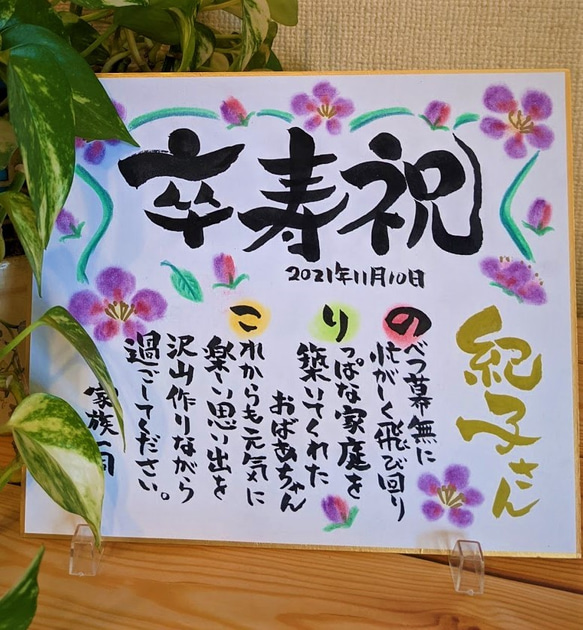 卒寿祝
2021年11月10日
紀子さん
のべつ幕無に
忙がしく飛び回り
りっぱな家庭を
築いてくれた
おばあちゃん
これからも元気に
楽しい思い出を
沢山作りながら
過ごしてください。
家族一同